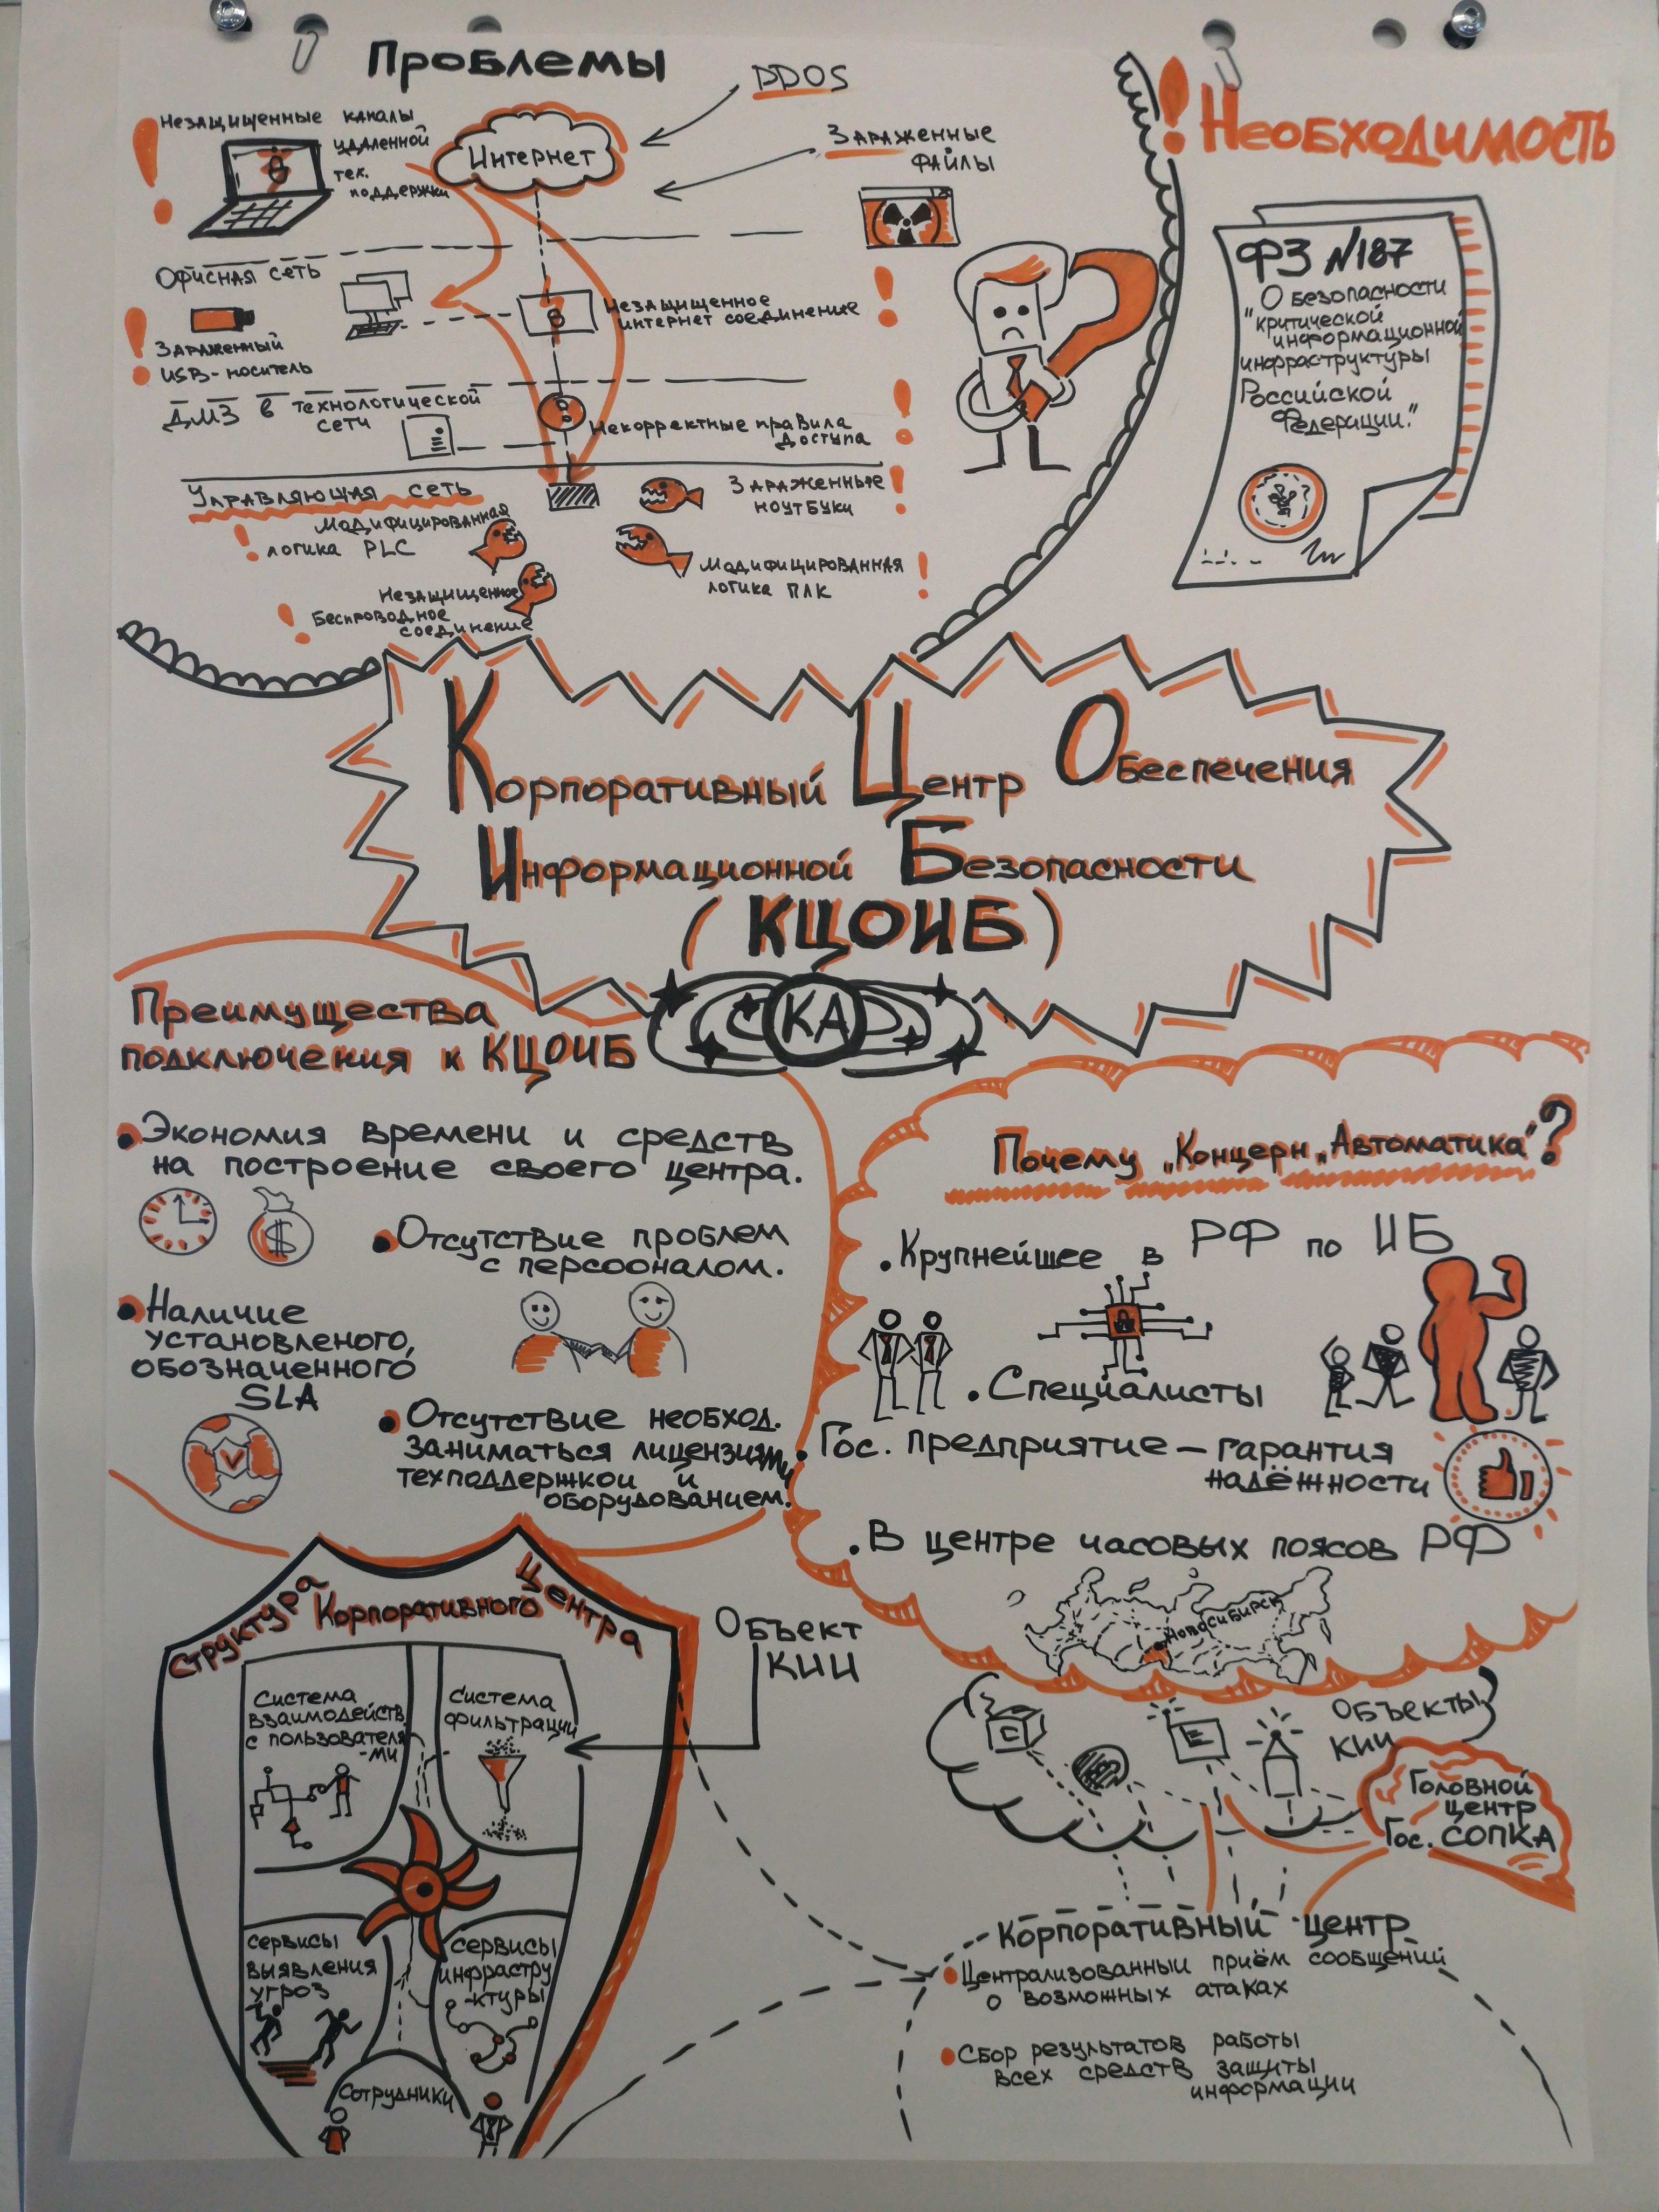 Проблемы
DDOS
Незащищенные каналы
удаленной
тех.
поддержки
Интернет
Зараженные
файлы
Офисная сеть
Незащищенное
интернет соединение
Зараженный
USB-носитель
ДМЗ в технологической
сети
Некорректные правила
доступа
Управляющая сеть
Зараженные
ноутбуки
Модифицированная
логика PLC
Модифицированная
логика ПЛК
Незащищенное
Беспроводное
соединение
! Необходимость
ФЗ №187
О безопасности
"критической
информационной
инфраструктуры
Российской
Федерации."
Корпоративный Центр Обеспечения
Информационной Безопасности
(КЦОИБ)
КА
Преимущества
подключения к КЦОИБ
• Экономия времени и средств
на построение своего центра.
$
• Отсутствие проблем
с персооналом.
• Наличие
установленого,
обозначенного
SLA
• Отсутствие необход.
заниматься лицензиями
техподдержкой и
оборудованием.
Почему „Концерн „Автоматика"?
• Крупнейшее в РФ по ИБ
• Специалисты
• Гос. предприятие – гарантия
надёжности
• В центре часовых поясов РФ
Новосибирск
Структура Корпоративного Центра
Система
взаимодейств.
с пользователя
-ми
Система
фильтрации
Сервисы
выявления
угроз
Сервисы
инфрастру
-ктуры
Сотрудники
Объект
КИИ
С
Е
Объекты
КИИ
Головной
центр
Гос. СОПКА
Корпоративный центр
• Централизованный приём сообщений
о возможных атаках
• Сбор результатов работы
всех средств защиты
информации